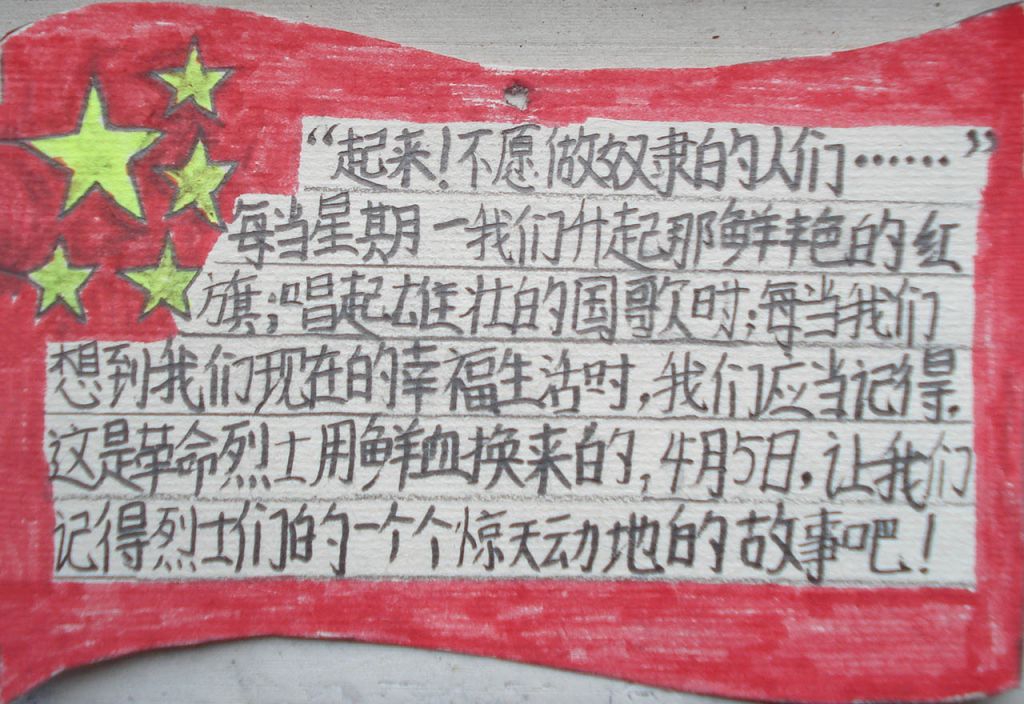 “起来！不愿做奴隶的人们……”
每当星期一我们升起那鲜艳的红
旗；唱起雄壮的国歌时；每当我们
想到我们现在的幸福生活时，我们应当记得，
这是革命烈士用鲜血换来的，4月5日，让我们
记得烈士们的一个个惊天动地的故事吧！